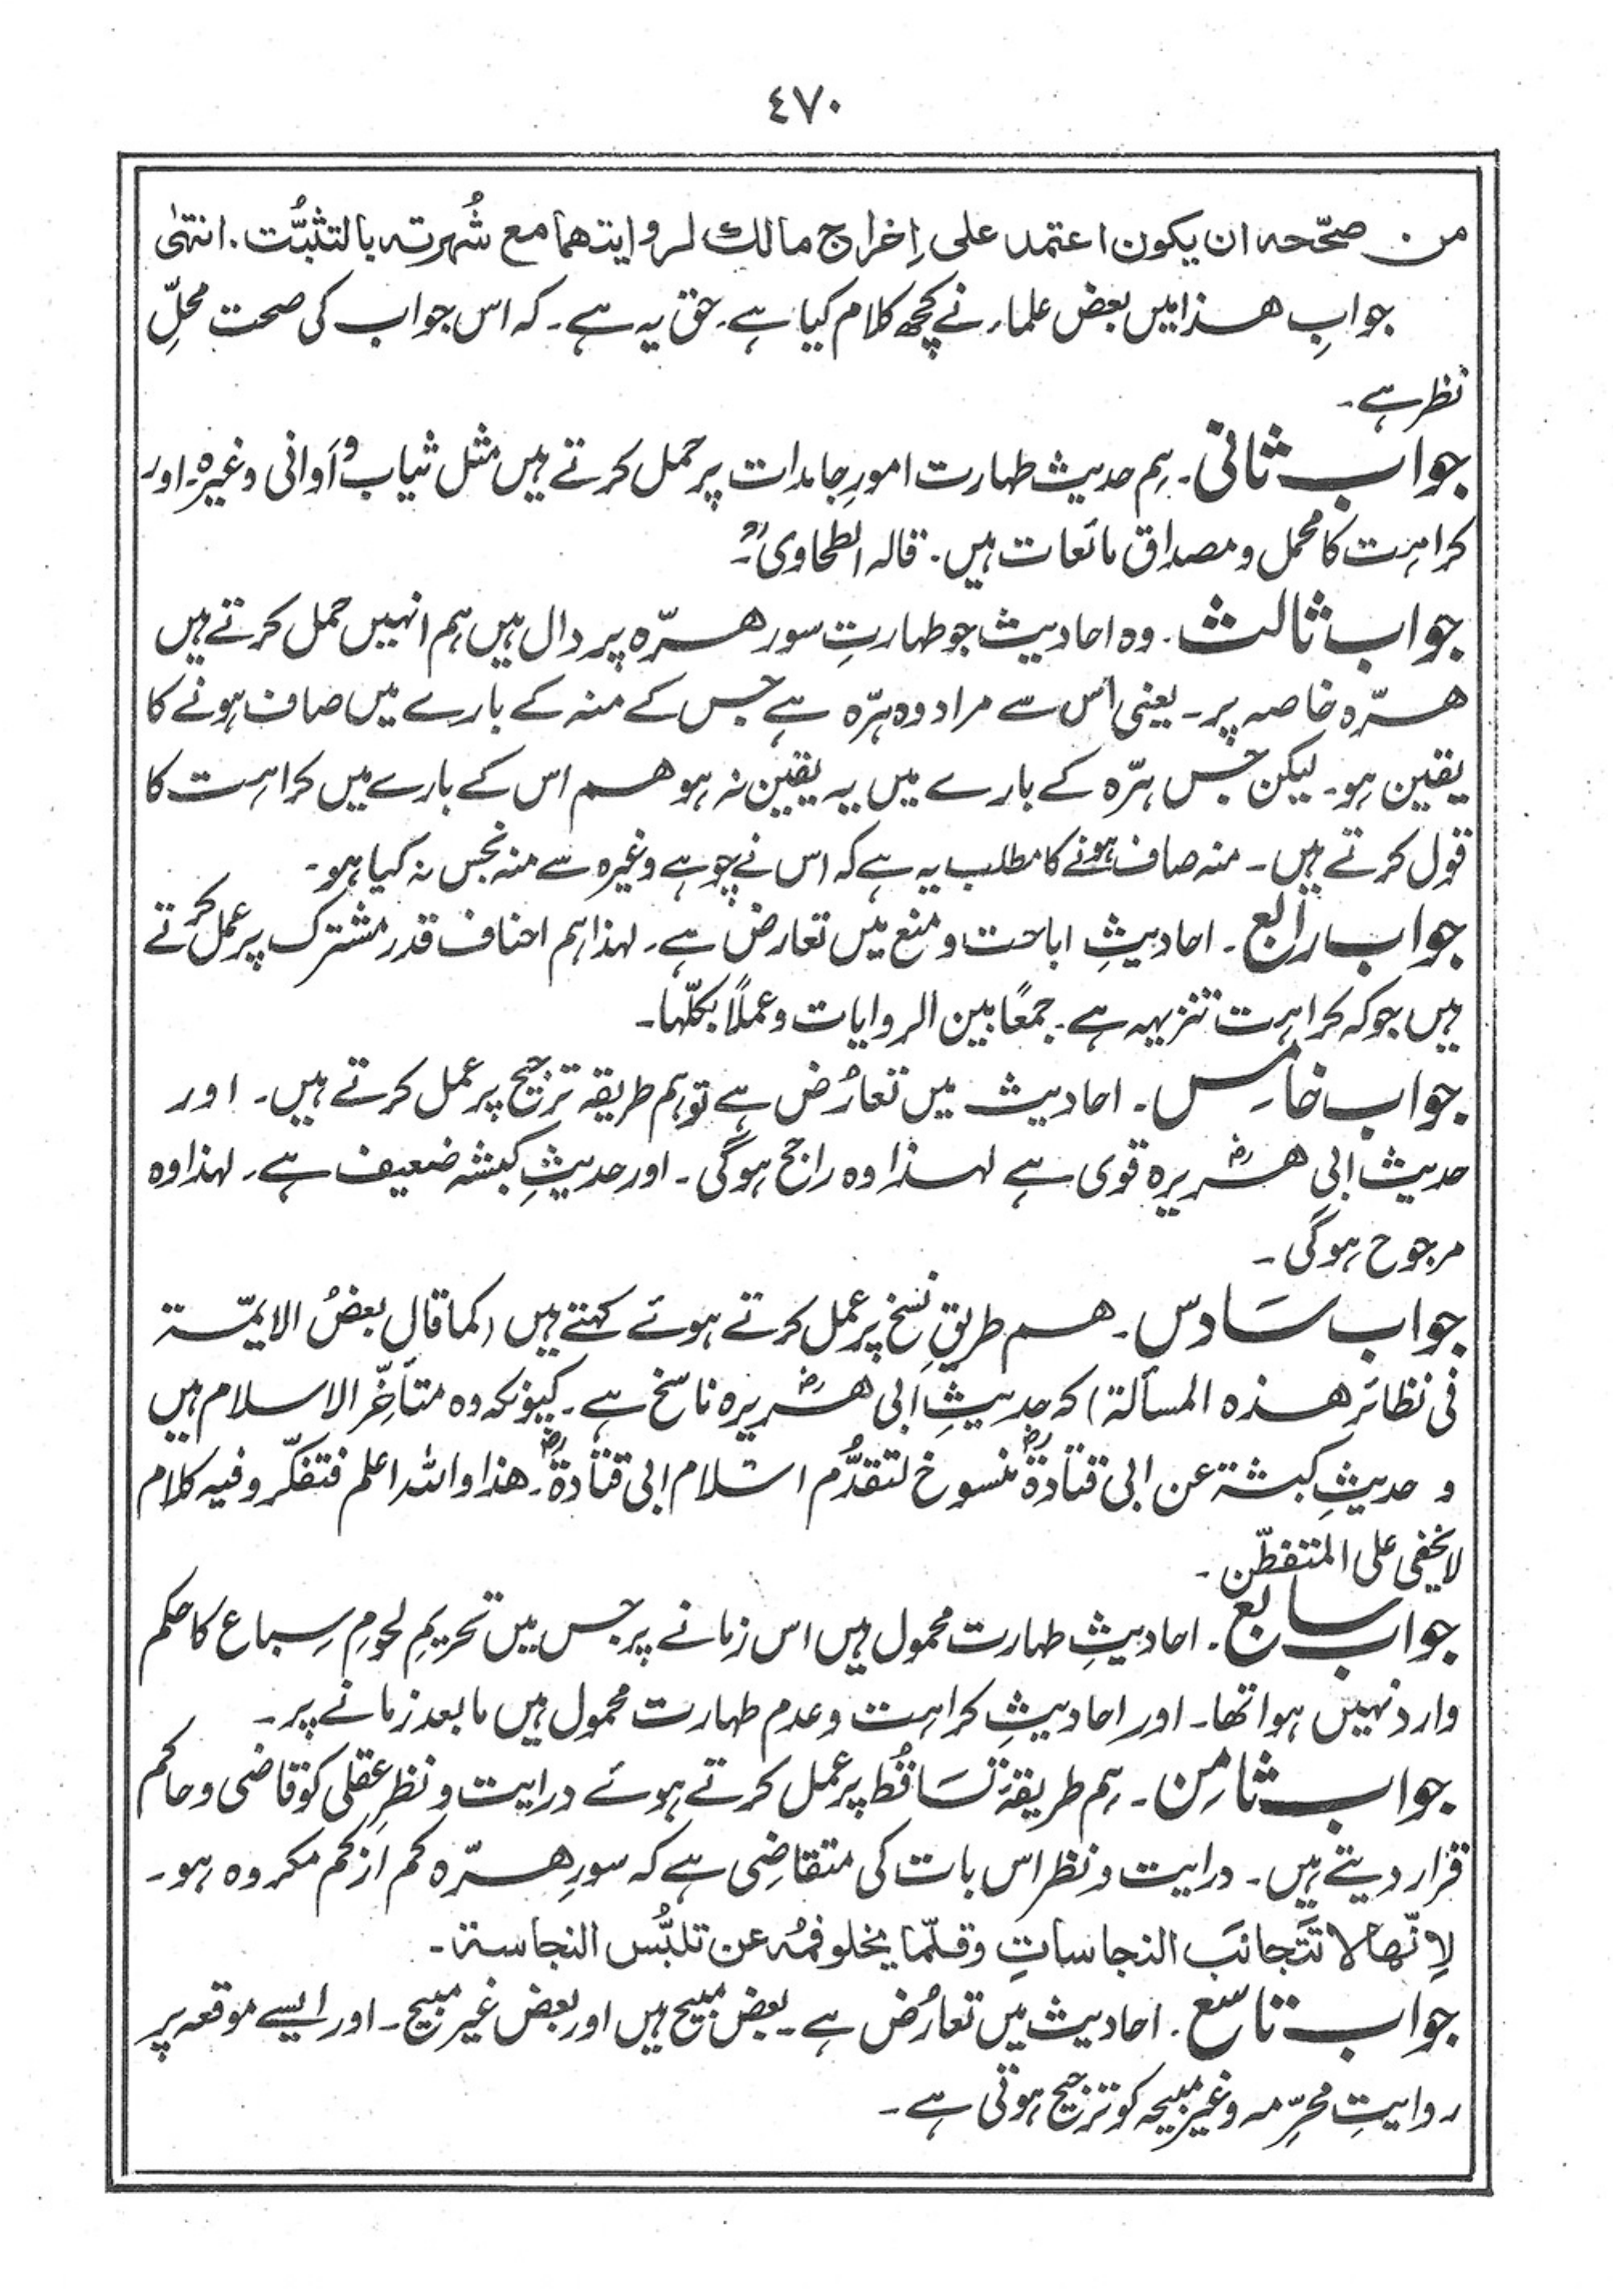 ٤٧٠
من صحّحہ ان یکون اعتمد علی إخراج مالك لروایتھما مع شُہرتہ بالتثبُّت . انتہیٰ
جوابِ ھذا میں بعض علماء نے کچھ کلام کیا ہے۔ حق یہ ہے۔ کہ اس جواب کی صحت محلِّ
نظر ہے۔
جواب ثانی ۔ ہم حدیث طہارت امورِ جامدات پر حمل کرتے ہیں مثل ثیاب و أوانی وغیرہ۔ اور
کراہت کا محمل و مصداق مائعات ہیں . قالہ الطحاویؒ۔
جواب ثالث ۔ وہ احادیث جو طہارتِ سور ھرّہ پر دال ہیں ہم انہیں حمل کرتے ہیں
ھرّہ خاصہ پر ۔ یعنی اُس سے مراد وہ ہرّہ ہے جس کے منہ کے بارے میں صاف ہونے کا
یقین ہو ۔ لیکن جس ہرّہ کے بارے میں یہ یقین نہ ہو ھم اس کے بارے میں کراہت کا
قول کرتے ہیں ۔ منہ صاف ہونے کا مطلب یہ ہے کہ اس نے چوہے وغیرہ سے منہ نجس نہ کیا ہو ۔
جواب رابع ۔ احادیثِ اباحت و منع میں تعارض ہے۔ لہذا ہم احناف قدر مشترک پر عمل کرتے
ہیں جو کہ کراہت تنزیہہ ہے ۔ جمعًا بین الروایات و عملًا بکلّہا۔
جواب خامس ۔ احادیث میں تعارُض ہے تو ہم طریقہ ترجیح پر عمل کرتے ہیں۔ اور
حدیث ابی ھریرہؓ قوی ہے لہذا وہ راجح ہوگی ۔ اور حدیثِ کبشہ ضعیف ہے۔ لہذا وہ
مرجوح ہوگی ۔
جواب سَادس ۔ ھم طریقِ نسخ پر عمل کرتے ہوئے کہتے ہیں (کما قال بعضُ الایمّۃ
فی نظائر ھذہ المسألۃ) کہ حدیثِ ابی ھریرہؓ ناسخ ہے ۔ کیونکہ وہ متأخِّر الاسلام ہیں
و حدیثِ کبشۃ عن ابی قتادۃؓ منسوخ لتقدُّم اسلام ابی قتادۃؓ ۔ ھذا واللہ اعلم فتفکّر وفیہ کلام
لا یخفی علی المتفطّن ۔
جواب سابع ۔ احادیثِ طہارت محمول ہیں اس زمانے پر جس میں تحریمِ لحومِ سباع کا حکم
وارد نہیں ہوا تھا ۔ اور احادیثِ کراہت و عدم طہارت محمول ہیں مابعد زمانے پر ۔
جواب ثامِن ۔ ہم طریقۂ تسَاقُط پر عمل کرتے ہوئے درایت و نظرِ عقلی کو قاضی و حاکم
قرار دیتے ہیں ۔ درایت و نظر اس بات کی متقاضِی ہے کہ سورِ ھرّہ کم از کم مکروہ ہو ۔
لِانّھا لا تَتَجانَبَ النجاساتِ وقلّما یخلو فمُہ عن تلبُّس النجاسۃ ۔
جواب تاسع ۔ احادیث میں تعارُض ہے ۔ بعض مبیح ہیں اور بعض غیر مبیح ۔ اور ایسے موقعہ پر
روایتِ محرِّمہ و غیر مبیحہ کو ترجیح ہوتی ہے ۔